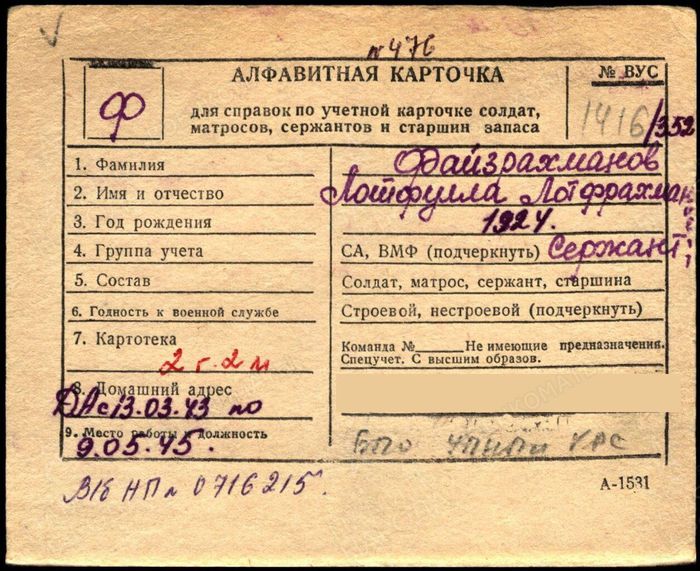 № 476
АЛФАВИТНАЯ КАРТОЧКА
№ ВУС
Ф
для справок по учетной карточке солдат,
матросов, сержантов и старшин запаса
1416/352
1. Фамилия
Файзрахманов
2. Имя и отчество
Лотфулла Лотфрахман
3. Год рождения
1924.
4. Группа учета
СА, ВМФ (подчеркнуть) Сержант
5. Состав
Солдат, матрос, сержант, старшина
6. Годность к военной службе
Строевой, нестроевой (подчеркнуть)
7. Картотека
2 г. 2 м
Команда № Не имеющие предназначения.
Спецучет. С высшим образов.
8. Домашний адрес
ДА с 13.03.43 по
9. Место работы и должность
9.05.45.
В/б НП № 0716215.
А-1531